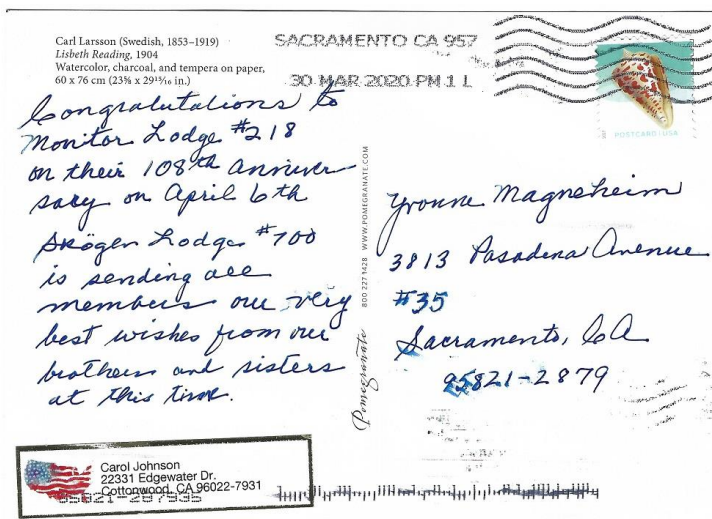 Carl Larsson (Swedish, 1853–1919)
Lisbeth Reading, 1904
Watercolor, charcoal, and tempera on paper,
60 x 76 cm (23⅝ x 29¹⁵⁄₁₆ in.)
SACRAMENTO CA 957
30 MAR 2020 PM 1 L
POSTCARD | USA
Congratulations to
Monitor Lodge #218
on their 108th Anniver
sary on April 6th
Skögen Lodge #700
is sending all
members our very
best wishes from our
brothers and sisters
at this time.
Pomegranate 800 227 1428 WWW.POMEGRANATE.COM
Yvonne Magneheim
3813 Pasadena Avenue
#35
Sacramento, CA
95821-2879
Carol Johnson
22331 Edgewater Dr.
Cottonwood, CA 96022-7931